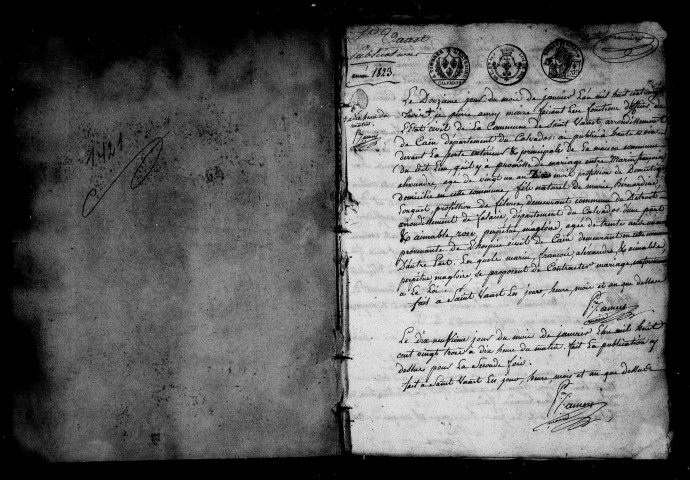 1421
Vaast
Publications
année 1823.
CALVADOS
Le Douzieme jour du mois de janvier L'an mil huit cent vingt
trois, je pierre amey maire faisant Les fonctions d'officier de
L'Etat civil de La Commune de Saint Vaast arrondissement
de Caen département du Calvados: ai publié à haute voix
devant La porte extérieure & principale de La maison commune
du dit Lieu qu'il y a promesse de mariage entre Marin françois
alexandre, agé de vingt un ans mois profession de Domestique
domicilié en cette commune, fils naturel de marie, bernardine,
profession de fileuse, demeurant commune de
arrondissement de falaise, département du Calvados d'une part
& aimable, rose, perpetue, magloire, agée de trente
provenante de L'hospice civil de Caen demeurant en cette commune
D'autre Part. Les quels marin, francois, alexandre, & aimable
perpétue magloire se proposent de Contracter mariage conformément
a La Loi
fait a Saint Vaast Les jour, heure, mois et an que dessus
P. amey
maire
Le dix neufieme jour du mois de janvier L'an mil huit
cent vingt trois a dix heure du matin. fait La publication cy
dessus pour La Seconde fois.
fait a Saint Vaast Les jour, heure, mois et an que dessus
P. amey
maire